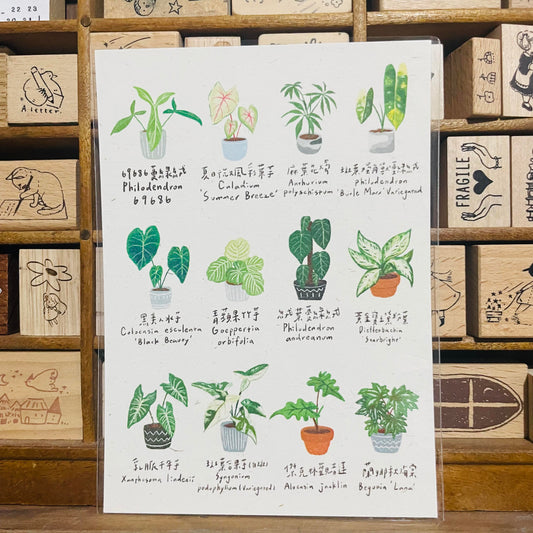 22 23
A Letter.
FRAGILE
69686蔓綠絨
Philodendron
69686
夏日微風彩葉芋
Caladium
'Summer Breeze'
麻葉花燭
Anthurium
polyschistum
Philodendron
'Burle Marx' Variegated
黑美人水芋
Colocasia esculenta
'Black Beauty'
青蘋果竹芋
Goeppertia
orbifolia
絨葉蔓綠絨
Philodendron
andreanum
黃金寶玉黛粉葉
Dieffenbachia
'Starbright'
乳脈千年芋
Xanthosoma lindenii
斑葉合果芋(白斑)
Syngonium
podophyllum (Variegated)
傑克林觀音蓮
Alocasia jacklin
蘭娜秋海棠
Begonia 'Lana'